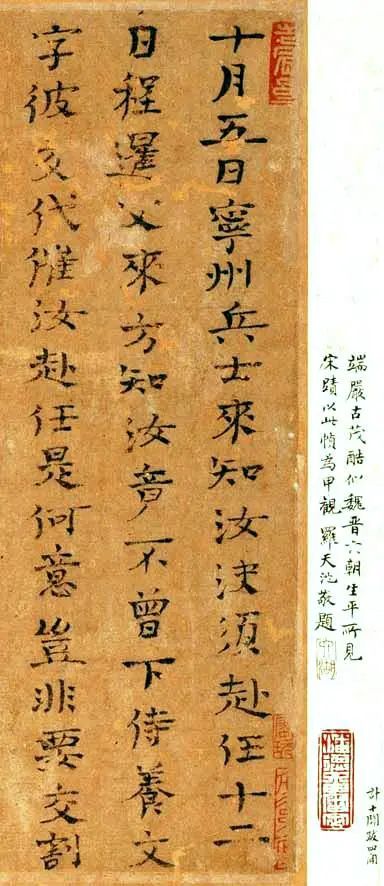 端嚴古茂酷似魏晉六朝生平所見
宋蹟以此幀為甲觀羅天池敬題
十月五日寧州兵士來知汝決須赴任十二
日程暹父來方知汝竟不曾下侍養文
字彼交代催汝赴任是何意豈非要交割